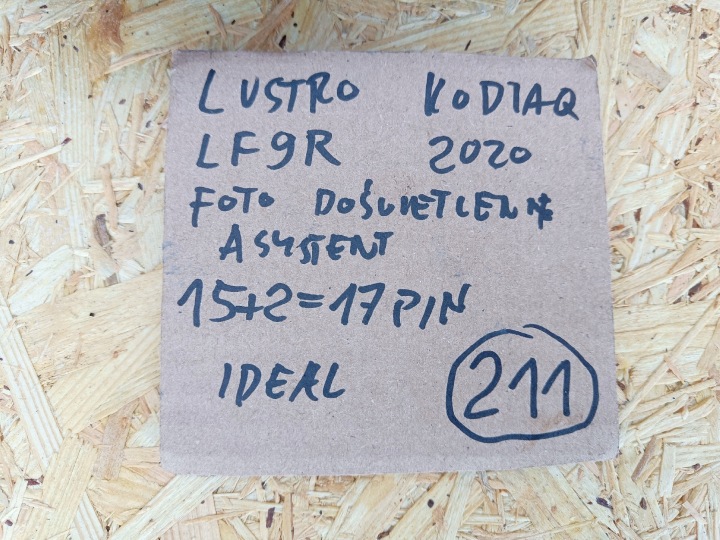 LUSTRO KODIAQ
LF9R 2020
FOTO DOŚWIETLENIE
ASYSTENT
15+2=17 PIN
IDEAL
211